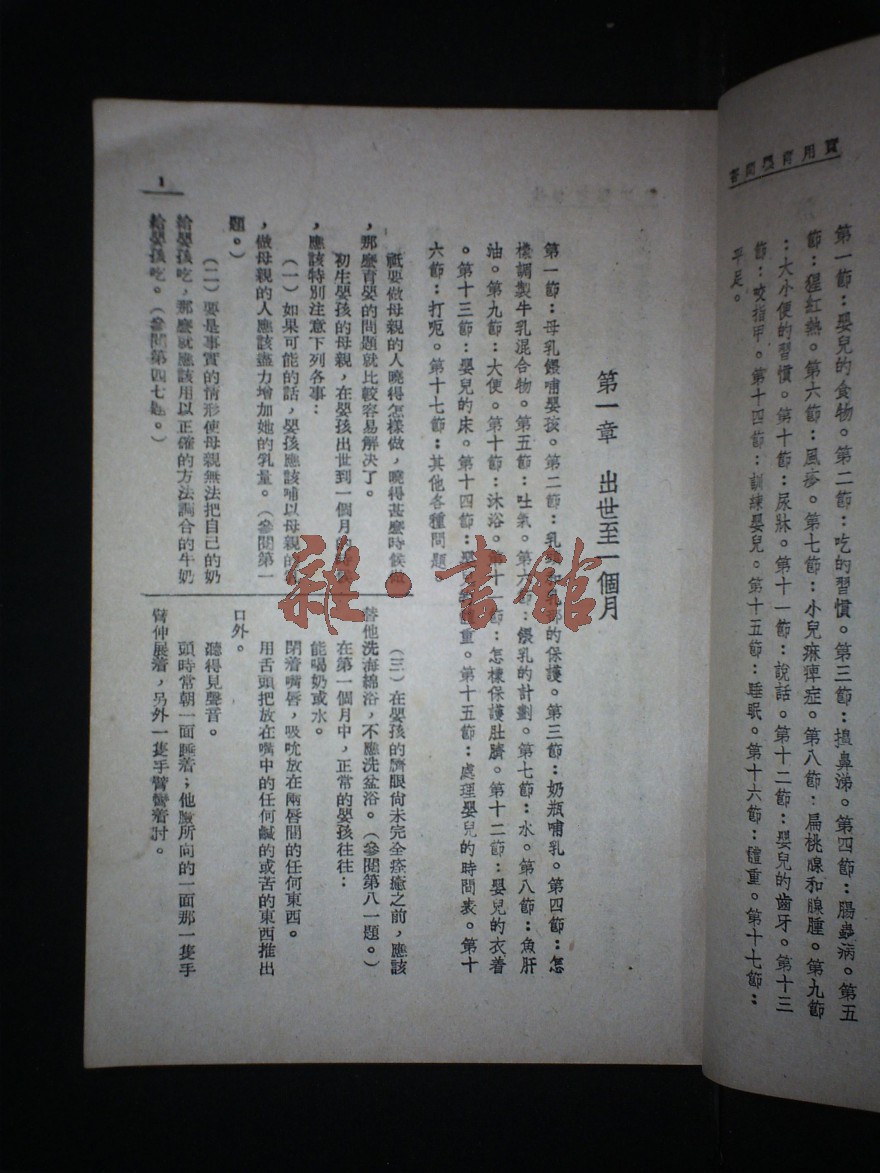 實用育嬰問答
第一節：嬰兒的食物。第二節：吃的習慣。第三節：損鼻涕。第四節：腸蟲病。第五
節：猩紅熱。第六節：風疹。第七節：小兒麻痺症。第八節：扁桃腺和腺腫。第九節
：大小便的習慣。第十節：尿牀。第十一節：說話。第十二節：嬰兒的齒牙。第十三
節：咬指甲。第十四節：訓練嬰兒。第十五節：睡眠。第十六節：體重。第十七節：
平足。
第一章 出世至一個月
第一節：母乳餵哺嬰孩。第二節：乳頭和乳部的保護。第三節：奶瓶哺乳。第四節：怎
樣調製牛乳混合物。第五節：吐氣。第六節：餵乳的計劃。第七節：水。第八節：魚肝
油。第九節：大便。第十節：沐浴。第十一節：怎樣保護肚臍。第十二節：嬰兒的衣着
。第十三節：嬰兒的床。第十四節：嬰兒的體重。第十五節：處理嬰兒的時間表。第十
六節：打呃。第十七節：其他各種問題
祇要做母親的人曉得怎樣做，曉得甚麼時候做
，那麼育嬰的問題就比較容易解決了。
初生嬰孩的母親，在嬰孩出世到一個月的時
，應該特別注意下列各事：
（一）如果可能的話，嬰孩應該哺以母親的
，做母親的人應該盡力增加她的乳量。（參閱第一
題。）
（二）要是事實的情形使母親無法把自己的奶
給嬰孩吃，那麼就應該用以正確的方法調合的牛奶
給嬰孩吃。（參閱第四七題。）
（三）在嬰孩的臍眼尚未完全痊癒之前，應該
替他洗海綿浴，不應洗盆浴。（參閱第八一題。）
在第一個月中，正常的嬰孩往往：
能喝奶或水。
閉着嘴唇，吸吮放在兩唇間的任何東西。
用舌頭把放在嘴中的任何鹹的或苦的東西推出
口外。
聽得見聲音。
頭時常朝一面睡着；他臉所向的一面那一隻手
臂伸展着，另外一隻手臂彎着肘。
1
雜·書館